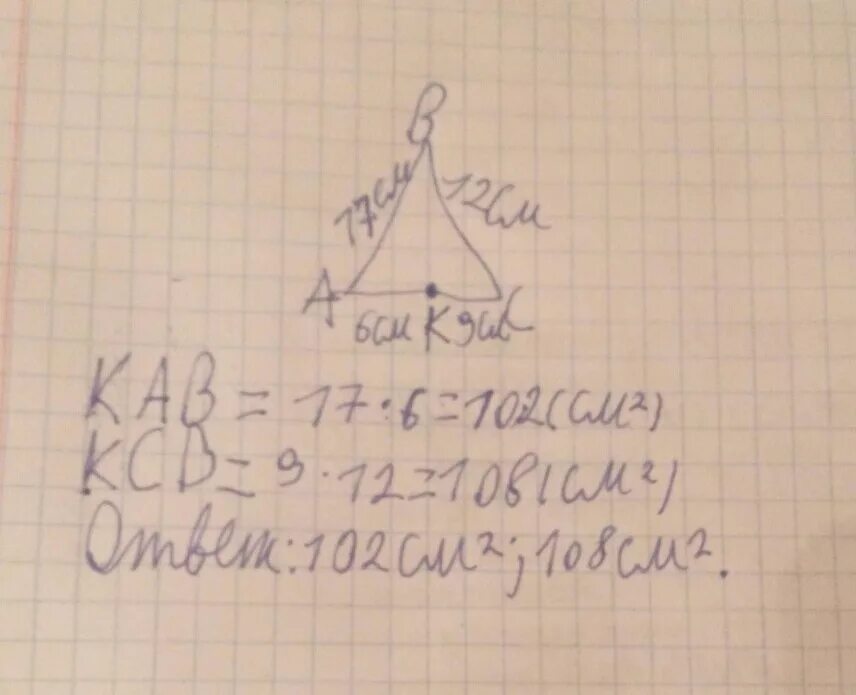 B
17см 12см
A
6см K 9см C
KAB = 17·6=102(см²)
KCB = 9·12=108(см²)
Ответ: 102см²; 108см².